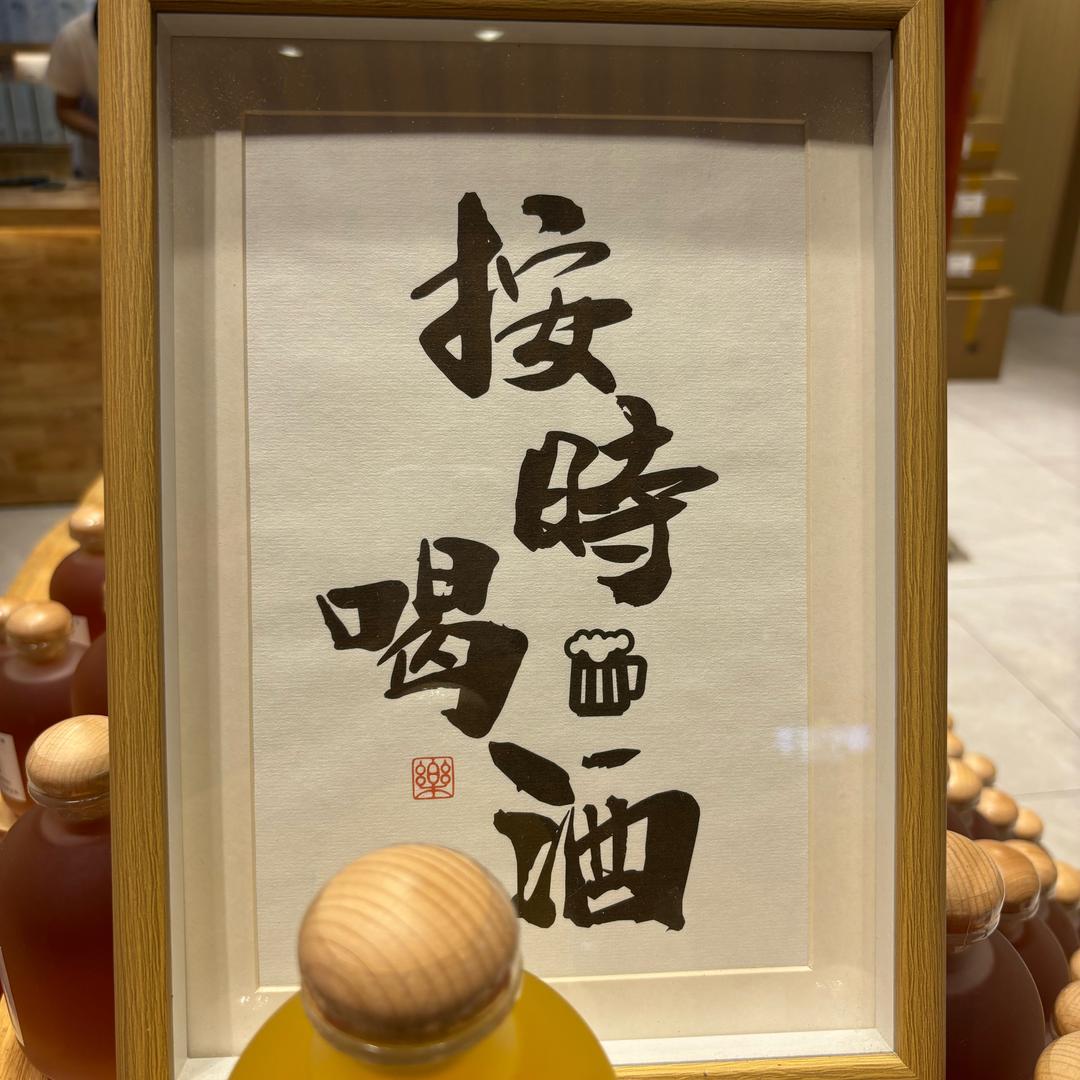 按
時
喝
酒
樂